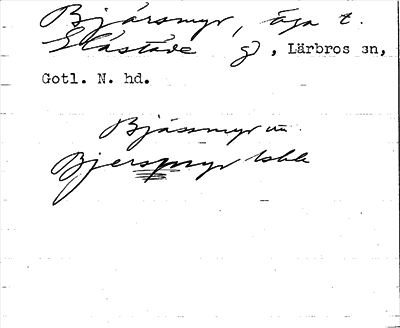 Bjärsmyr, äga t.
Glästäde g), Lärbros sn,
Gotl. N. hd.
Bjässmyr un.
Bjersmyr lskk